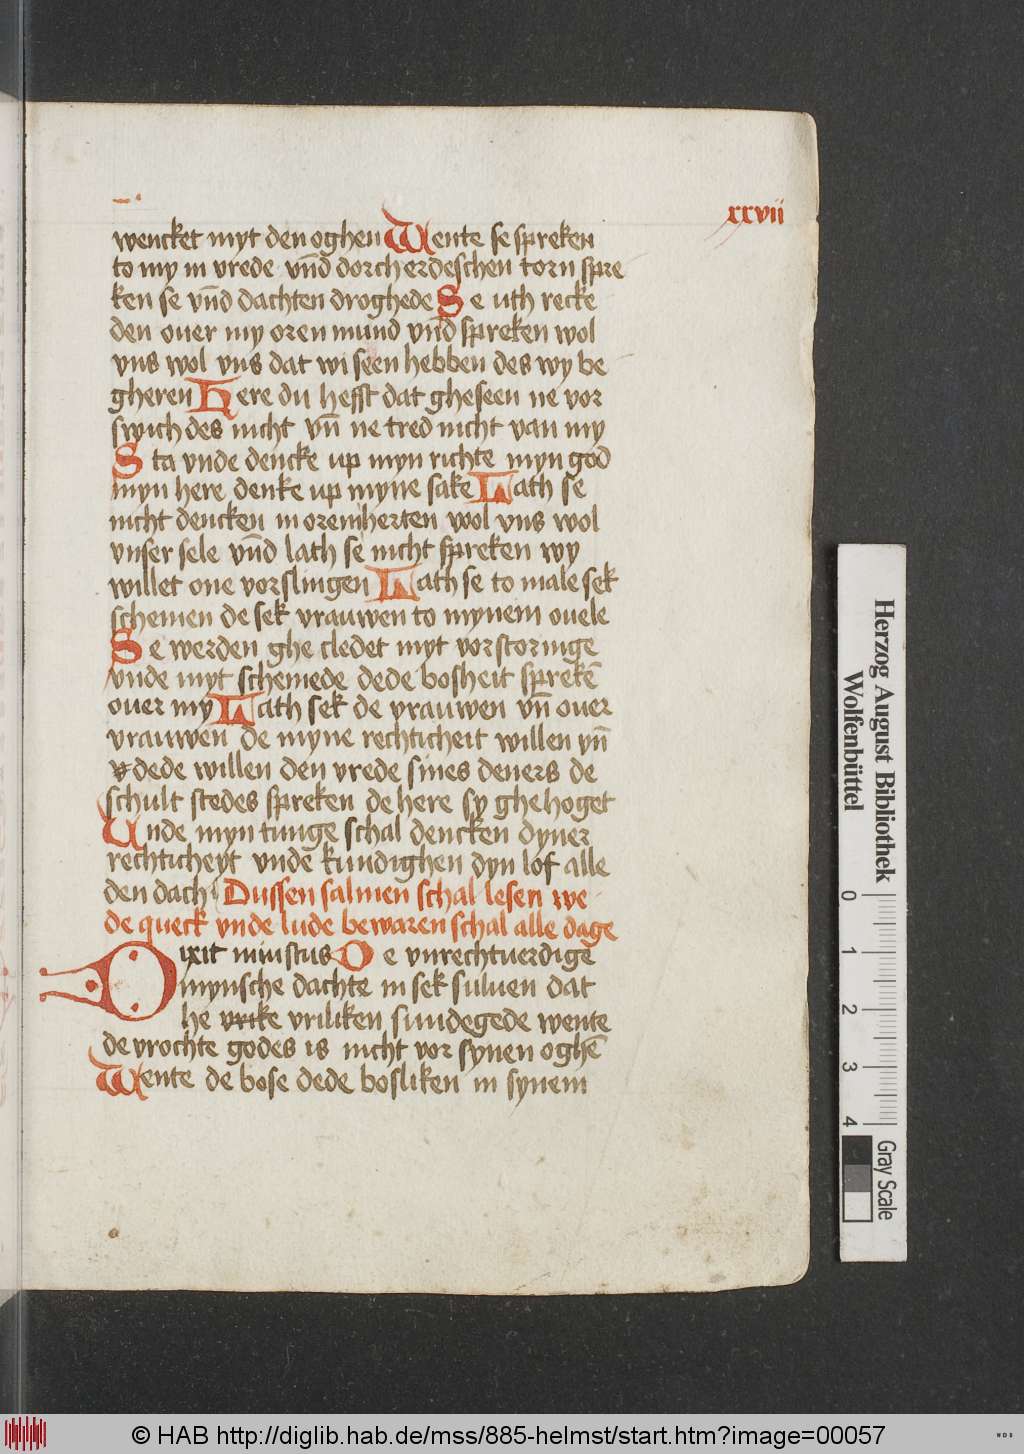 xxvii
wencket myt den oghen Wente se spreken
to my in vrede vnd dorch erdeschen torn spre
ken se vnd dachten droghede Se uth recke
den ouer my oren mund vnd spreken wol
vns wol vns dat wi seen hebben des wy be
gheren Here du hefft dat gheseen ne vor
swich des nicht vn̄ ne tred nicht van my
Sta vnde dencke up myn richte myn god
myn here denke up myne sake Lath se
nicht dencken in orem herten wol vns wol
vnser sele vnd lath se nicht spreken wy
willet one vorslingen Lath se to male sek
schemen de sek vrauwen to mynem ouele
Se werden ghe cledet myt vorstoringe
vnde myt schemede dede bosheit sprekē
ouer my Lath sek de vrauwen vn̄ ouer
vrauwen de myne rechticheit willen vn̄
dede willen den vrede sines deners de
schult stedes spreken de here sy ghehoget
Unde myn tunge schal dencken dyner
rechticheyt vnde kundighen dyn lof alle
den dach Dussen salmen schal lesen we
de queck vnde lude bewaren schal alle dage
Dixit iniustus De vnrechtuerdige
mynsche dachte in sek suluen dat
he vriliken sundegede wente
de vrochte godes is nicht vor synen oghē
Wente de bose dede bosliken in synem
Herzog August Bibliothek
Wolfenbüttel
0 1 2 3 4
Gray Scale
© HAB http://diglib.hab.de/mss/885-helmst/start.htm?image=00057